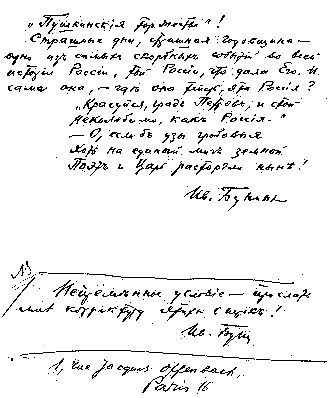 „Пушкинскія торжества"!
Страшные дни, страшная годовщина —
одно изъ самыхъ скорбныхъ событій во всей
исторіи Россіи, той Россіи, что дала Его. И
сама она, — гдѣ она теперь, эта Россія?
„Красуйся, градъ Петровъ, и стой
Неколебимо, какъ Россія. —"
— О, если бъ узы гробовыя
Хоть на единый мигъ земной
Поэтъ и Царь расторгли нынѣ!
Ив. Бунинъ
Непремѣнное условіе — прислать
мнѣ корректуру этихъ строкъ!
Ив. Бун
1, rue Jacques Offenbach,
Paris 16